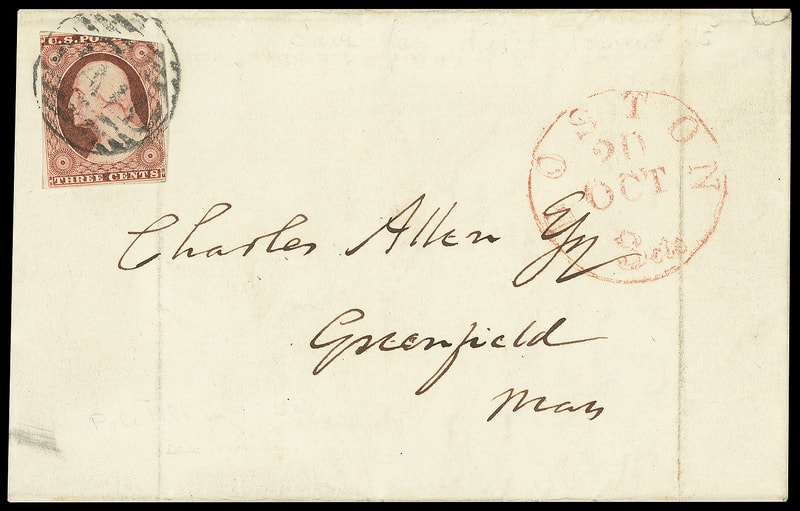 U.S. POS
THREE CENTS
BOSTON
20
OCT
3 cts
Charles Allen Esq
Greenfield
Mass